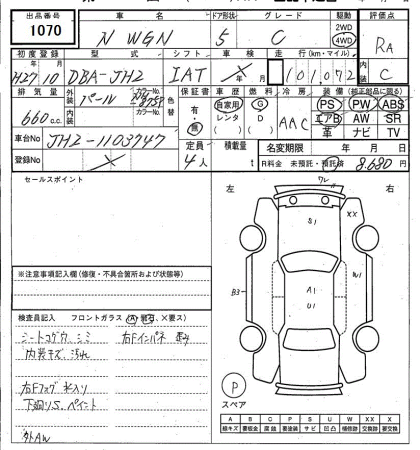 出品番号 車名 ドア形状 グレード 駆動 評価点
1070 N WGN 5 C 2WD 4WD RA
初度登録 型式 シフト 車検 走行(km・マイル) 内装
H27 10 DBA-JH2 IAT 年 月 101,072 C
排気量 外装 パール カラーNo. 色替 保証書 車歴 燃料 冷房 装備(純正部品に限る)
660 c.c. 内装 カラーNo. 有・無 自家用 レンタ G D AAC PS PW ABS
エアB AW SR
革 ナビ TV
車台No JH2-1103747 定員 積載量 名変期限 年 月 日
登録No 4人 t R料金 未預託・預託済 8,680 円
セールスポイント
左 右
ワレ
S1 XX
W1
B3 A1
U1
※注意事項記入欄(修復・不具合箇所および状態等)
検査員記入 フロントガラス(A・飛石、X要ス)
シートコゲ穴 シミ 右Fインパネ
内装キズ 汚れ
右Fフォグ 水入り
下廻りS、ペイント
外AW
P
スペア
A B C P S U W X XX
線キズ 要板金 腐蝕 要塗装 サビ 凹凸 補修跡 交換跡 要交換